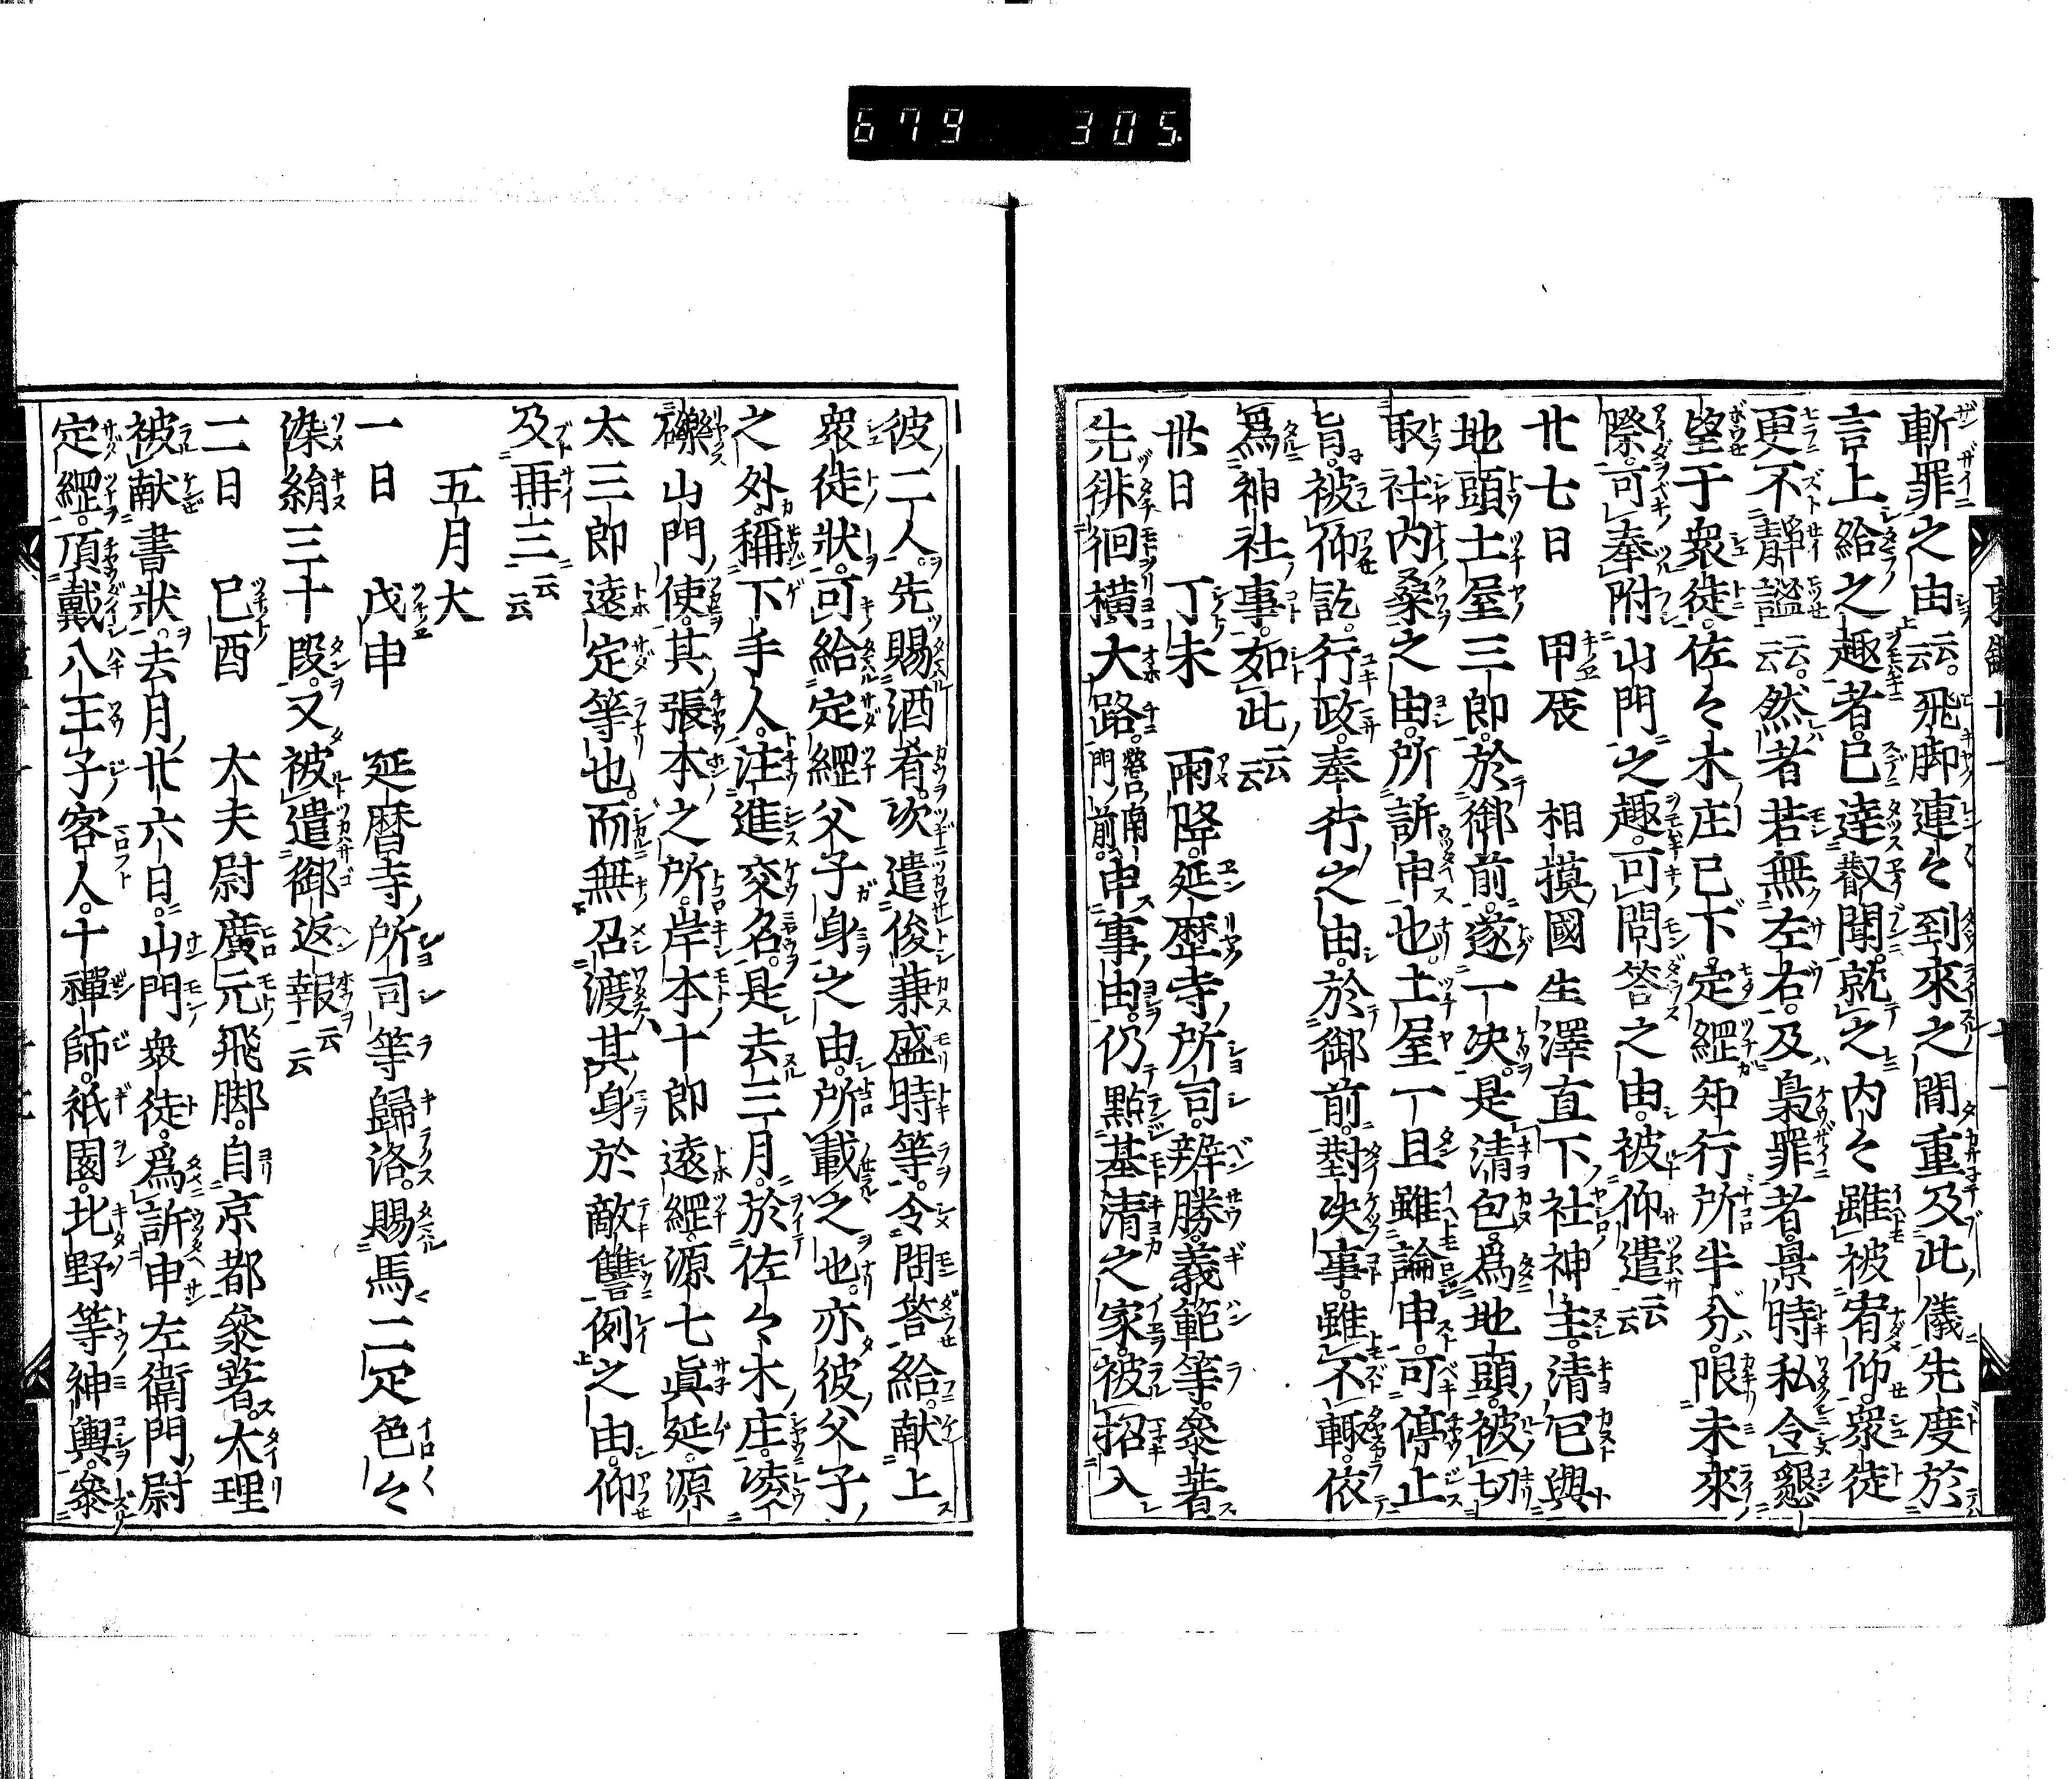 679 305.
斬罪之由云云飛脚連々到來之間重及此儀先度於
言上給之趣者已達叡聞就之内々雖被宥仰衆徒
更不靜謐云云然者若無左右及梟罪者景時私令懇
望于衆徒佐々木庄已下定經知行所半分限未來
際可奉附山門之趣可問答之由被仰遣云云
廿七日 甲辰 相摸國生澤直下社神主清包與
地頭土屋三郎於御前遂一决是清包爲地頭被切
取社内桑之由所訴申也土屋一且雖論申可停止
旨被仰訖行政奉行之由於御前對决事雖不輙依
爲神社事如此云云
卅日 丁未 雨降延歴寺所司辨勝義範等參著
先徘徊横大路營南門前申事由仍點基清之家被招入
彼二人先賜酒肴次遣俊兼盛時等令問答給献上
衆徒狀可給定經父子身之由所載之也亦彼父子
之外稱下手人注進交名是去三月於佐々木庄凌
礫山門使其張本之所岸本十郎遠經源七眞延源
太三郎遠定等也而無召渡其身於敵讎例之由仰
及再三云云
五月大
一日 戊申 延暦寺所司等歸洛賜馬二疋色々
染絹三十段又被遣御返報云云
二日 己酉 大夫尉廣元飛脚自京都參著大理
被献書狀去月廿六日山門衆徒爲訴申左衞門尉
定經頂戴八王子客人十禪師祇園北野等神輿參